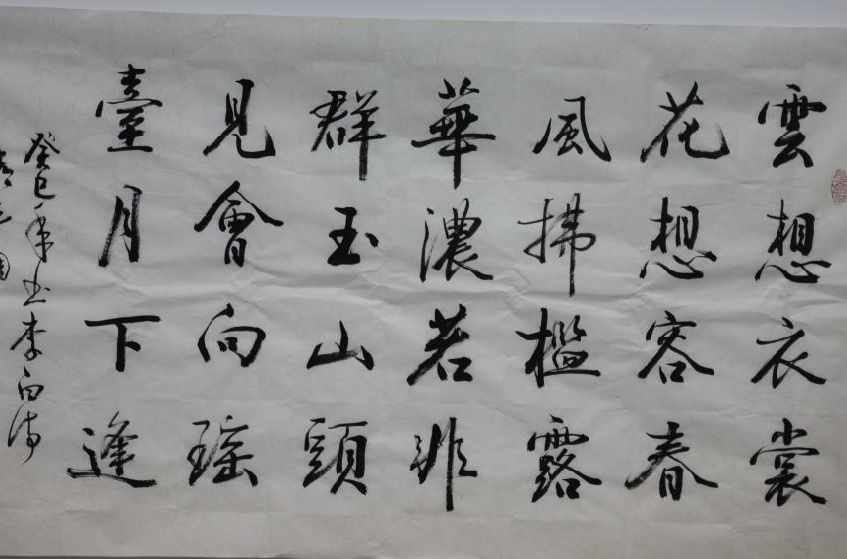 雲想衣裳
花想容春
風拂檻露
華濃若非
群玉山頭
見會向瑶
臺月下逢
癸巳年书李白诗